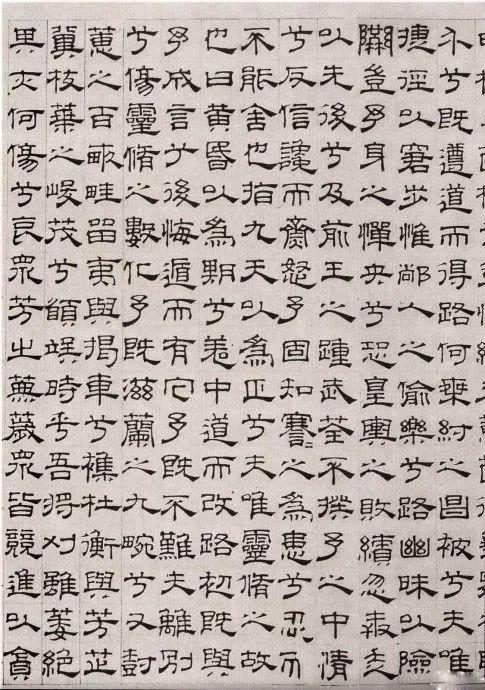 介兮既遵道而得路何桀紂之昌被兮夫唯
捷徑以窘步惟䣊人之偷樂兮路幽昧以險
隘豈予身之憚殃兮恐皇輿之敗績忽奔走
以先後兮及前王之踵武荃不揆予之中情
兮反信讒而齌怒予固知謇〻之為患兮忍而
不能舍也指九天以為正兮夫唯靈脩之故
也曰黃昏以為期兮羌中道而改路初既與
予成言兮後悔遁而有它予既不難夫離別
兮傷靈脩之數化予既滋蘭之九畹兮又樹
蕙之百畮畦留夷與揭車兮襍杜衡與芳芷
冀枝葉之峻茂兮願竢時乎吾將刈雖萎絕
其亦何傷兮哀眾芳之蕪薉眾皆競進以貪